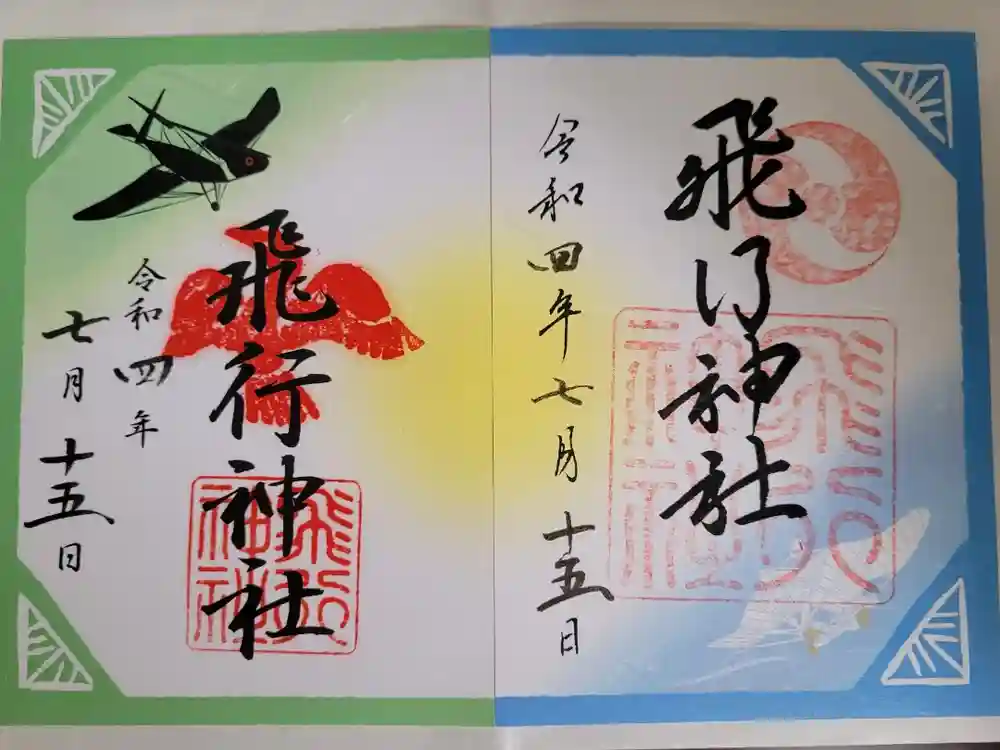 飛行神社
令和四年七月十五日
飛行神社
飛行神社
令和四年
七月十五日
飛行神社